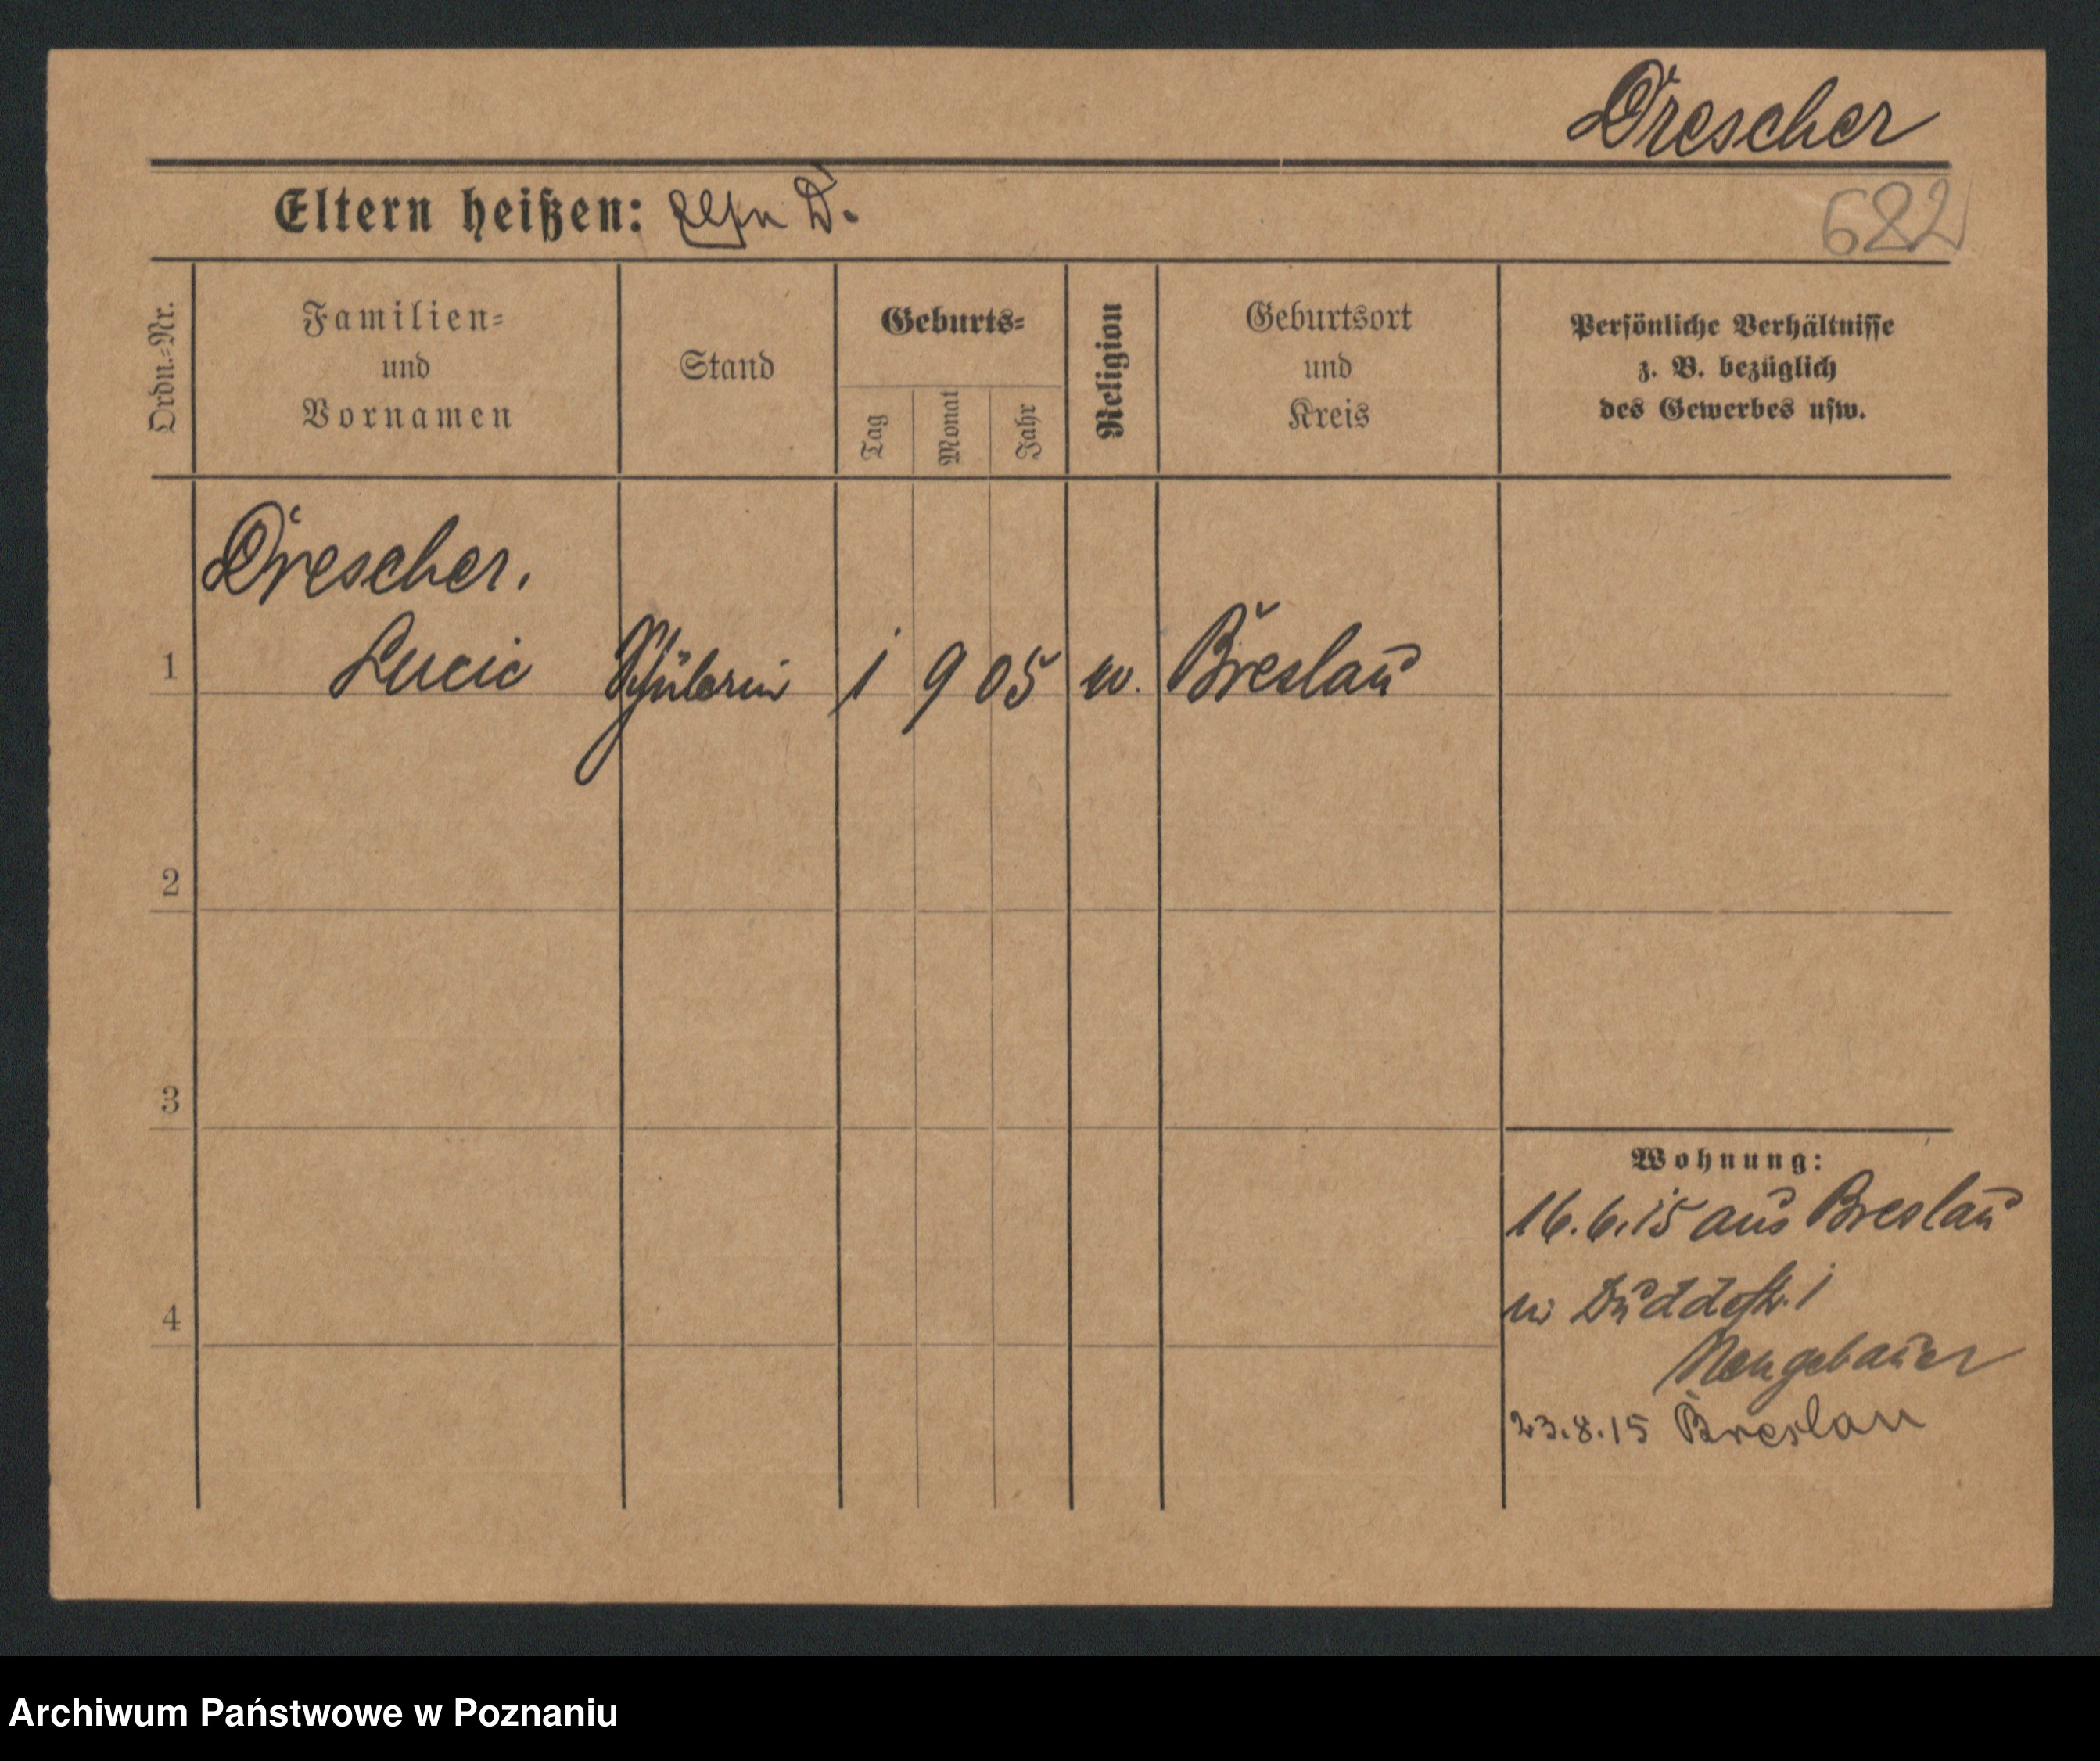 Drescher
Eltern heißen: D.
622
Ordn.-Nr.
Familien-
und
Vornamen
Stand
Geburts-
Tag
Monat
Jahr
Religion
Geburtsort
und
Kreis
Persönliche Verhältnisse
z. B. bezüglich
des Gewerbes usw.
Drescher.
1 Lucie Schülerin 1 9 05 Breslau
2
3
4
Wohnung:
16.6.15 aus Breslau
1
Neugebauer
23.8.15 Breslau
Archiwum Państwowe w Poznaniu